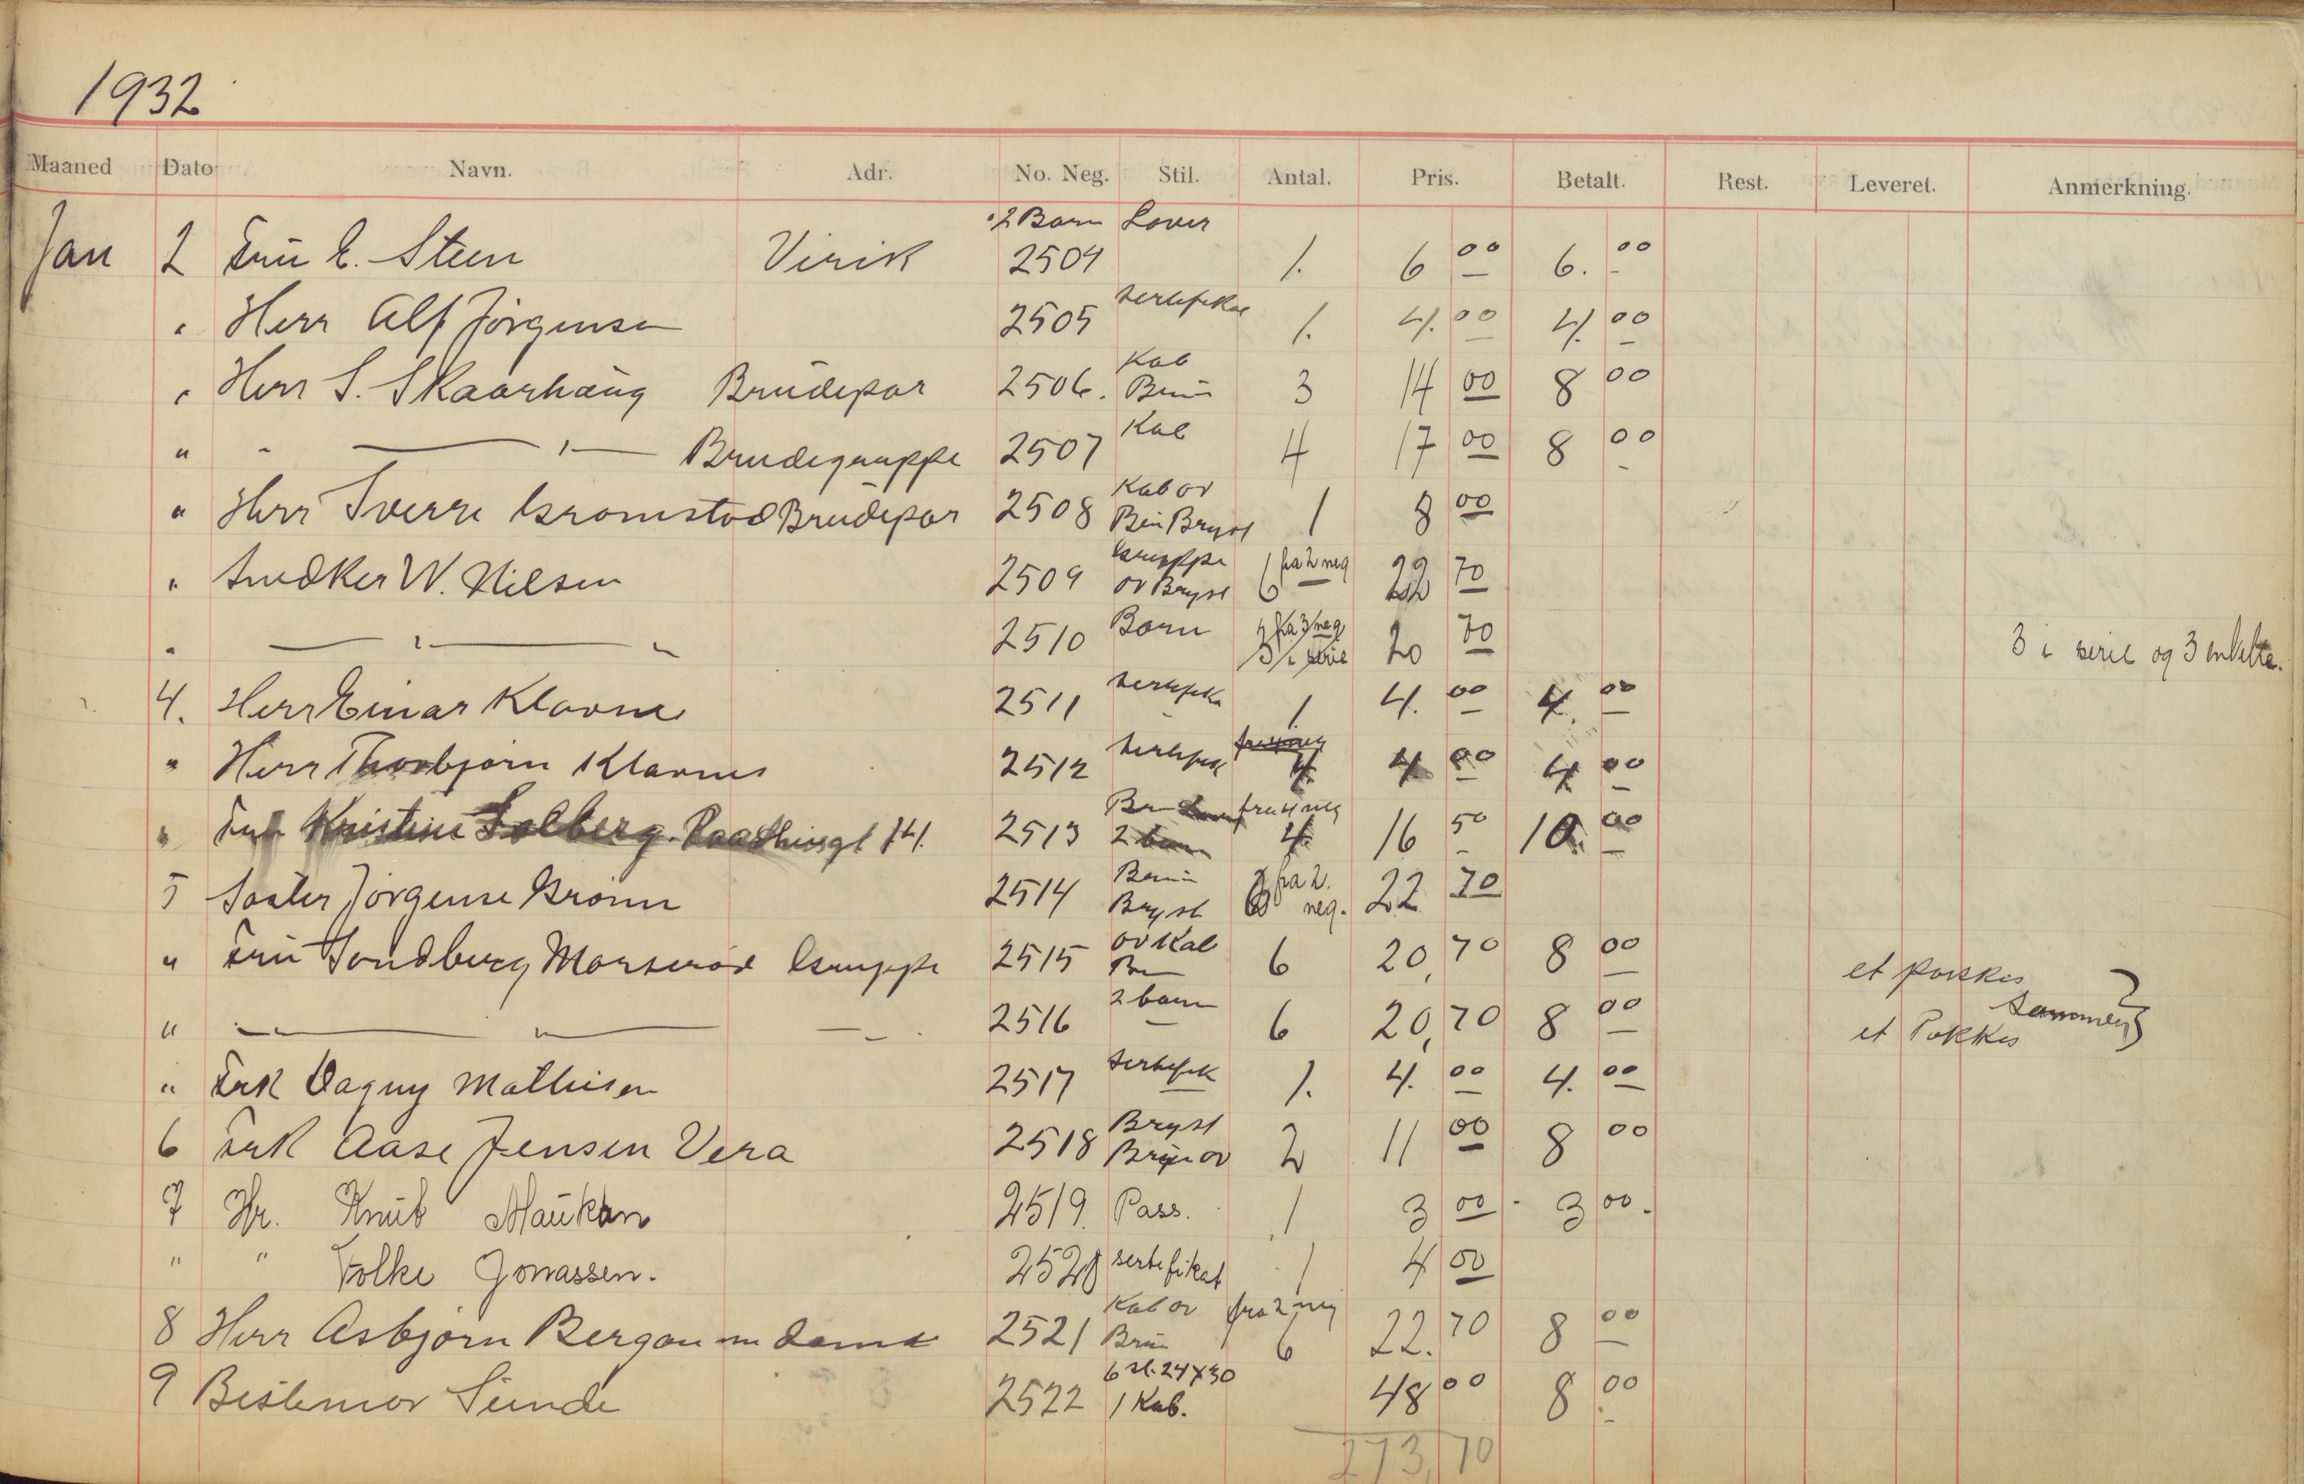 1932
Maaned Dato Navn. Adr. No. Neg. Stil. Antal. Pris. Betalt. Rest. Leveret. Anmerkning.
2 Barn
Jan 2 Fru E. Steen Virik 2504 1. 6 00 6. 00
" Herr Alf Jörgensen 2505 sertifikat 1. 4. 00 4. 00
" Herr S. Skaarhaug Brudepar 2506. Kab Brun 3 14 00 8 00
" " — " — Brudegruppe 2507 Kab 4 17 00 8 00
" Herr Sverre Gromstad Brudepar 2508 Kab ov Bryst 1 8 00
" Snedker W. Nilsen 2509 Gruppe ov Bryst 6 fra 2 neg 22 70
" — " — " 2510 Barn 3 fra 3 neg 3 i serie 20 70 3 i serie og 3 enkelte.
4. Herr Einar Klavnes 2511 1 4. 00 4. 00
" Herr Thorbjörn Klavnes 2512 4. 00 4 00
" Fru Kristine Solberg. 14. 2513 2 barn fra 4 neg 4. 16 50 10. 00
5 Søster Jörgense Grönn 2514 Bryst 6 fra 2. neg. 22 70
" Fru Sondberg Gruppe 2515 ov Kab 6 20, 70 8 00 et
" — " — — 2516 2 barn — 6 20, 70 8 00 et Pakkes sammen
" Frk Dagny Mathisen 2517 sertifik 1. 4. 00 4. 00
6 Frk Aase Jensen Vera 2518 Bryst Brun ov 2 11 00 8 00
7 Hr. Knut Maukan 2519. Pass. 1 3 00 3 00.
" " Folke Jonassen. 2520 sertefikat 1 4 00
8 Herr Asbjörn Bergan m dame 2521 Kab ov Brun fra 2 neg 6 22. 70 8 00
9 Bestemor Sunde 2522 6 st. 24x30 1 Kab. 48 00 8 00
273,70